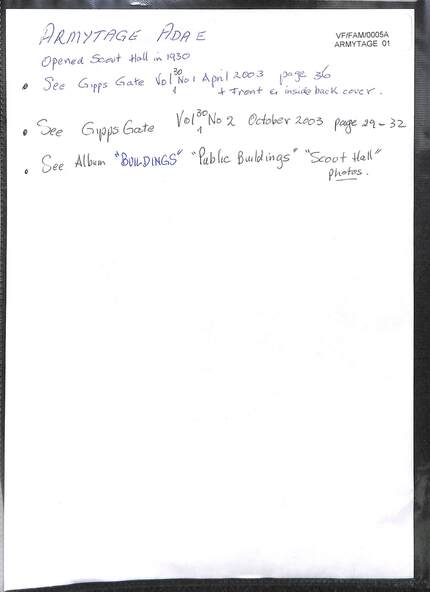 ARMYTAGE ADA E
VF/FAM/0005A
ARMYTAGE 01
Opened Scout Hall in 1930
• See Gipps Gate Vol 30 No 1 April 2003 page 36
+ Front & inside back cover.
• See Gipps Gate Vol 30 No 2 October 2003 page 29-32
• See Album "BUILDINGS" "Public Buildings" "Scout Hall"
photos.